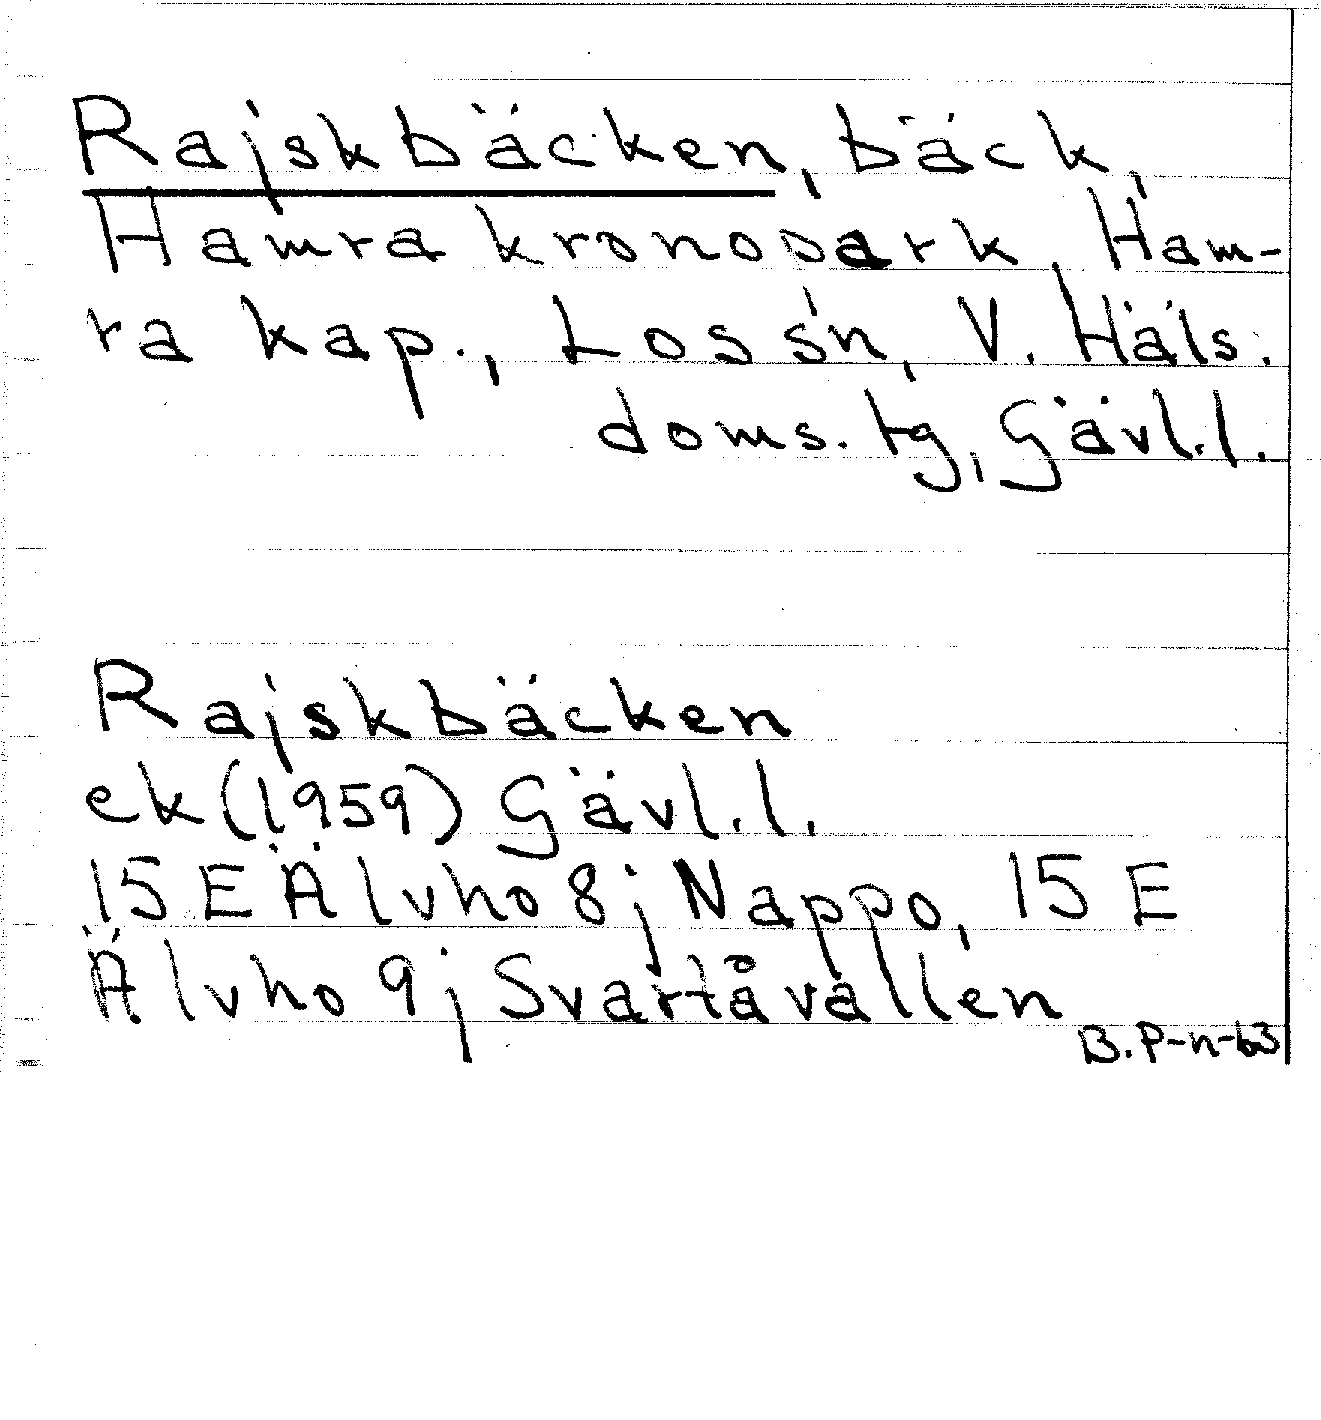 Rajskbäcken, bäck,
Hamra kronopark, Ham-
ra kap., Los sn, V. Häls.
doms. tg, Gävl.l.
Rajskbäcken
ek (1959) Gävl.l.
15 E Älvho 8j Nappo, 15 E
Älvho 9j Svartåvallen
B.P-n-63